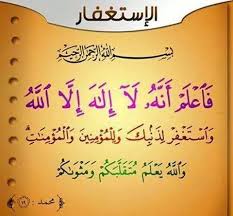 الإستغفار
بِسْمِ اللَّهِ الرَّحْمَٰنِ الرَّحِيمِ
فَاعْلَمْ أَنَّهُ لَا إِلَٰهَ إِلَّا اللَّهُ
وَاسْتَغْفِرْ لِذَنبِكَ وَلِلْمُؤْمِنِينَ وَالْمُؤْمِنَاتِ
وَاللَّهُ يَعْلَمُ مُتَقَلَّبَكُمْ وَمَثْوَاكُمْ
محمد : ١٩